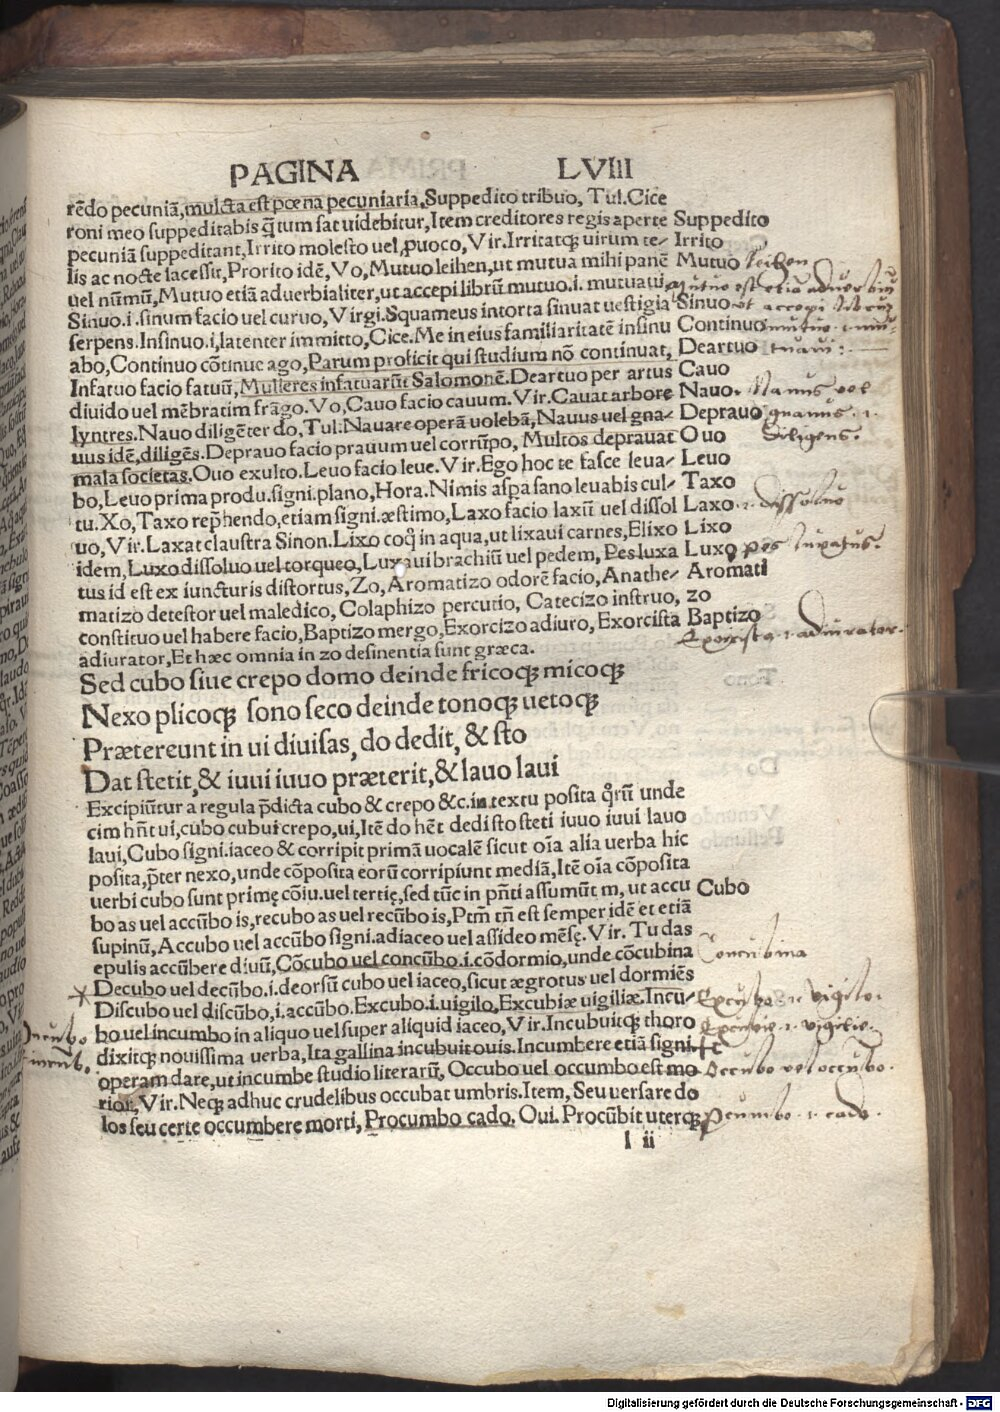 PAGINA LVIII
rēdo pecuniā, mulcta est pœna pecuniaria, Suppedito tribuo, Tul. Cice
roni meo suppeditabis q̄tum sat uidebitur, Item creditores regis aperte Suppedito
pecuniā suppeditant, Irrito molesto uel ꝓuoco, Vir. Irritatq; uirum te- Irrito
lis ac nocte lacessit, Prorito idē, Vo, Mutuo leihen, ut mutua mihi panē Mutuo leihen
uel nūmū, Mutuo etiā aduerbialiter, ut accepi librū mutuo .i. mutuatui Mutuo est etiā aduerbiū
Sinuo .i. sinum facio uel curuo, Virgi. Squameus intorta sinuat uestigia Sinuo ut accepi librū
serpens. Insinuo .i, latenter immitto, Cice. Me in eius familiaritatē insinu Continuo mutuo
abo, Continuo cōtinuc ago, Parum proficit qui studium nō continuat, Deartuo
Infatuo facio fatuū, Mulieres infatuarūt Salomonē. Deartuo per artus Cauo
diuido uel mēbratim frāgo. Vo, Cauo facio cauum. Vir. Cauat arbore Nauo. Nauus vel
lyntres. Nauo diligēter do, Tul: Nauare operā uolebā, Nauus uel gna- Deprauo gnauus .i.
uus idē, diligēs. Deprauo facio prauum uel corrūpo, Multos deprauat Ouo diligens.
mala societas. Ouo exulto. Leuo facio leue. Vir. Ego hoc te fasce leua- Leuo
bo, Leuo prima produ. signi. plano, Hora. Nimis aspa sano leuabis cul- Taxo
tu. Xo, Taxo rep̄hendo, etiam signi. æstimo, Laxo facio laxū uel dissol Laxo .i. dissoluo
uo, Vir. Laxat claustra Sinon. Lixo coq̄ in aqua, ut lixaui carnes, Elixo Lixo
idem, Luxo dissoluo uel torqueo, Luxaui brachiū uel pedem, Pes luxa Luxo pes luxatus.
tus id est ex iuncturis distortus, Zo, Aromatizo odorē facio, Anathe- Aromati
matizo detestor uel maledico, Colaphizo percutio, Catecizo instruo, zo
constituo uel habere facio, Baptizo mergo, Exorcizo adiuro, Exorcista Baptizo
adiurator, Et hæc omnia in zo desinentia sunt græca. Exorcista .i. adiurator.
Sed cubo siue crepo domo deinde fricoq; micoq;
Nexo plicoq; sono seco deinde tonoq; uetoq;
Prætereunt in ui diuisas, do dedit, & sto
Dat stetit, & iuui iuuo præterit, & lauo laui
Excipiūtur a regula p̄dicta cubo & crepo &c. in textu posita q̊rū unde
cim hn̄t ui, cubo cubui crepo, ui, Itē do hēt dedi sto steti iuuo iuui lauo
laui, Cubo signi. iaceo & corripit primā uocalē sicut oīa alia uerba hic
posita, p̄ter nexo, unde cōposita eorū corripiunt mediā, Itē oīa cōposita
uerbi cubo sunt primę cōiu. uel tertię, sed tūc in pn̄ti assumūt m, ut accu Cubo
bo as uel accūbo is, recubo as uel recūbo is, Ptm̄ tn̄ est semper idē et etiā
supinū, Accubo uel accūbo signi. adiaceo uel assideo mēsę. Vir. Tu das
epulis accūbere diuū, Cōcubo uel concūbo .i. cōdormio, unde cōcubina Concubina
Decubo uel decūbo .i. deorsū cubo uel iaceo, sicut ægrotus uel dormiēs
Discubo uel discūbo, i. accūbo. Excubo .i. uigilo, Excubiæ uigiliæ. Incu- Excubo .i. vigilo.
Incubo
bo uel incumbo in aliquo uel super aliquid iaceo, Vir. Incubuitq; thoro Excubie .i. vigilie.
dixitq; nouissima uerba, Ita gallina incubuit ouis. Incumbere etiā signifi-
incūb.
operam dare, ut incumbe studio literarū, Occubo uel occumbo est mo Occubo vel occūbo.
rior, Vir. Neq; adhuc crudelibus occubat umbris. Item, Seu uersare do
los seu certe occumbere morti, Procumbo cado. Oui. Procūbit uterq; ꝓcumbo .i. cado.
l ii
Digitalisierung gefördert durch die Deutsche Forschungsgemeinschaft - DFG